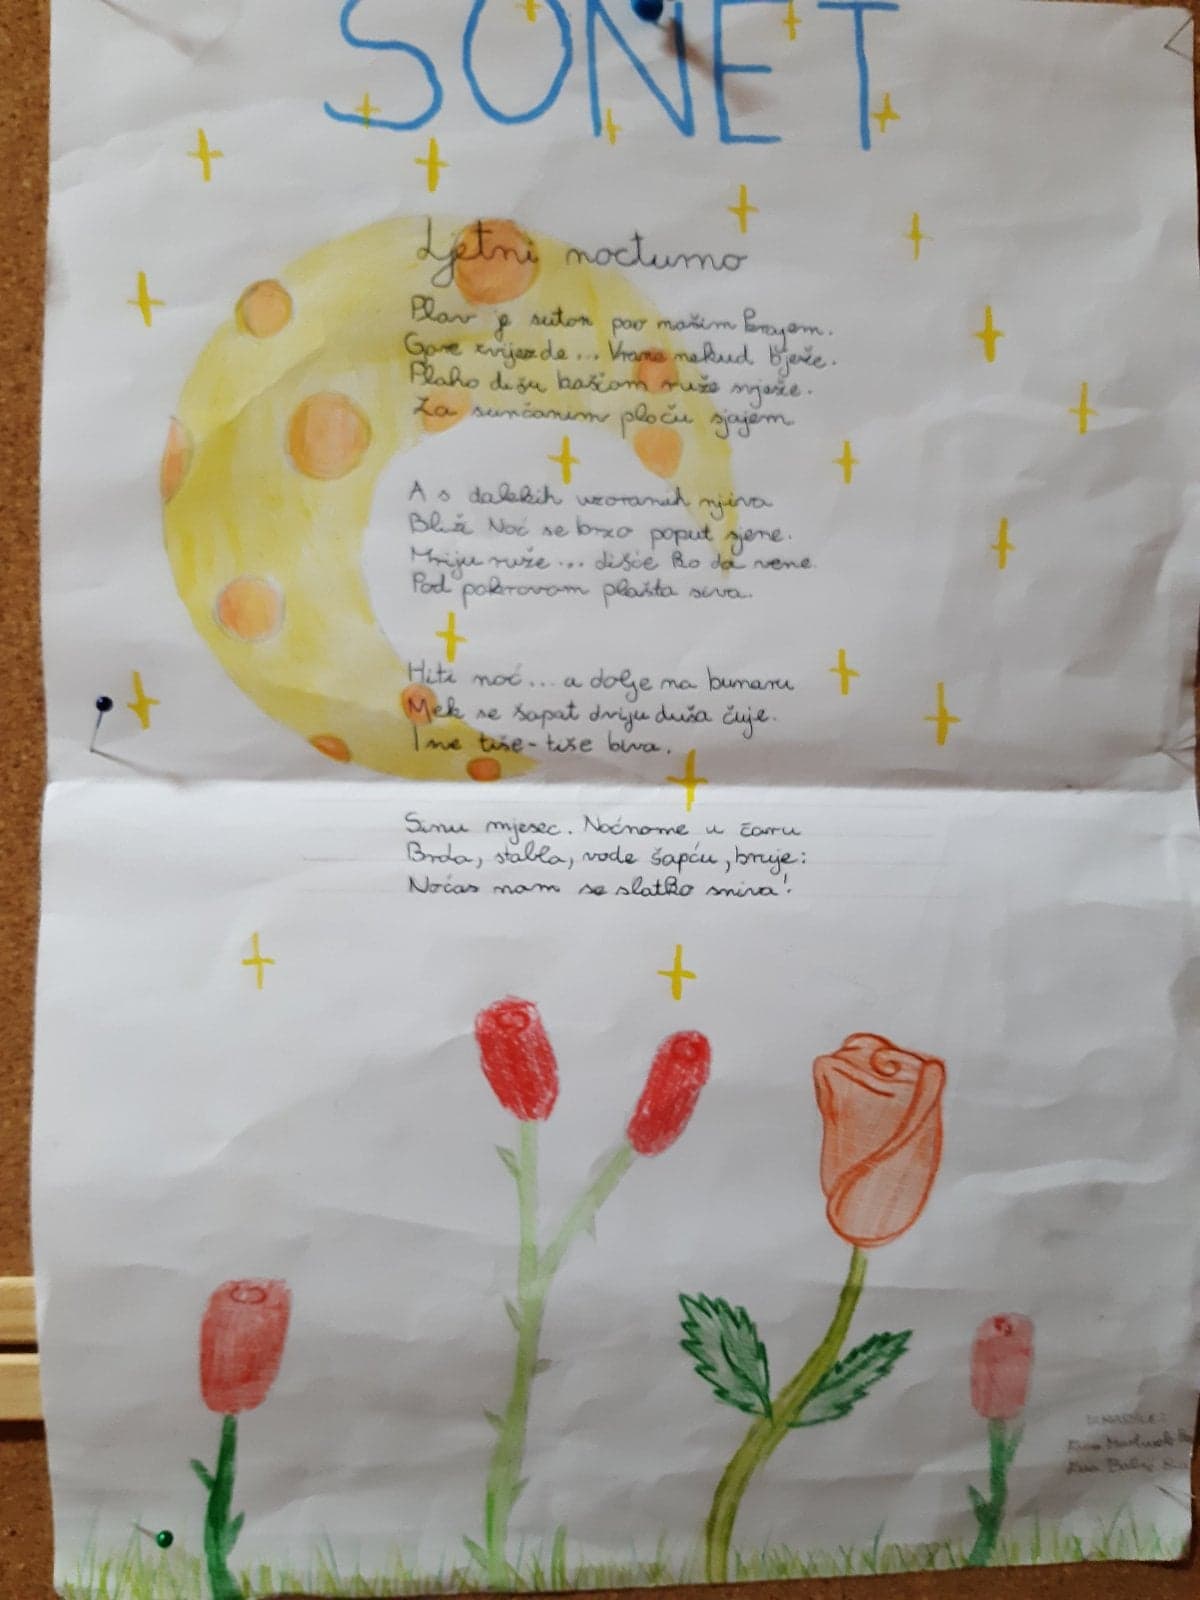 SONET
Ljetni nocturno
Plav je suton pao našim krajem.
Gore zvijezde... Vrane nekud bježe.
Plaho dišu bašćom ruže svježe.
Za sunčanim ploču sjajem
A s dalekih uzoranih njiva
Bliži Noć se brzo poput sjene.
Mriju ruže... dišić ko da vene.
Pod pokrovom plašta siva.
Hiti noć... a dolje na bunaru
Mek se šapat dviju duša čuje.
I sve tiše-tiše biva.
Sinu mjesec. Noćnome u čaru
Brda, stabla, vode šapću, bruje:
Noćas nam se slatko sniva!